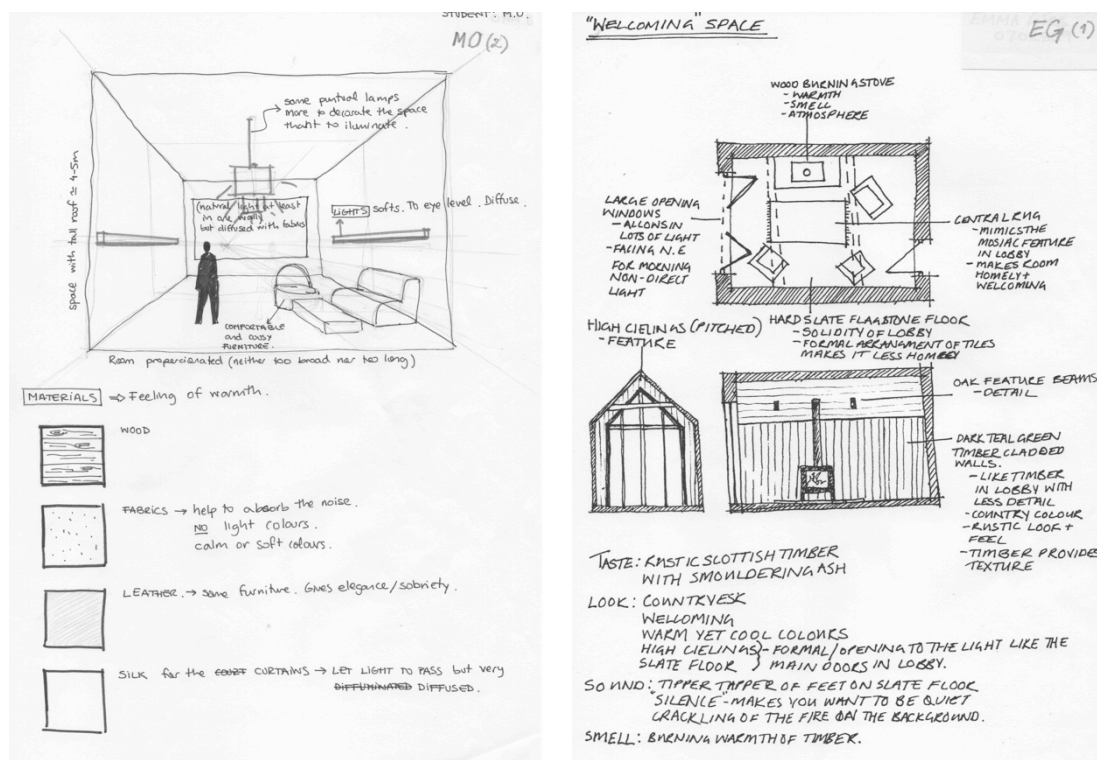 STUDENT: M.O.
MO(2)
some puntual lamps
more to decorate the space
than to iluminate.
space with tall roof ≈ 4-5m
(natural light at least
in one wall)
but diffused with fabric
LIGHTS softs. To eye level. Diffuse.
COMFORTABLE
and COSY
FURNITURE.
Room proporcionated (neither too broad nor too long)
MATERIALS ⇒ Feeling of warmth.
WOOD
FABRICS → help to absorb the noise.
NO light colours.
calm or soft colours.
LEATHER. → some furniture. Gives elegance/sobriety.
SILK for the CURTAINS → LET LIGHT TO PASS but very
DIFFUMINATED DIFFUSED.
"WELCOMING" SPACE
EG (1)
WOOD BURNING STOVE
- WARMTH
- SMELL
- ATMOSPHERE
LARGE OPENING
WINDOWS
- ALLOWS IN
LOTS OF LIGHT
- FACING N.E
FOR MORNING
NON-DIRECT
LIGHT
CENTRAL RUG
- MIMICS THE
MOSIAC FEATURE
IN LOBBY
- MAKES ROOM
HOMELY +
WELCOMING
HARD SLATE FLAGSTONE FLOOR
- SOLIDITY OF LOBBY
- FORMAL ARRANGMENT OF TILES
MAKES IT LESS HOMELY
HIGH CIELINGS (PITCHED)
- FEATURE
OAK FEATURE BEAMS
- DETAIL
DARK TEAL GREEN
TIMBER CLADDED
WALLS.
- LIKE TIMBER
IN LOBBY WITH
LESS DETAIL
- COUNTRY COLOUR
- RUSTIC LOOK +
FEEL
- TIMBER PROVIDES
TEXTURE
TASTE: RUSTIC SCOTTISH TIMBER
WITH SMOULDERING ASH
LOOK: COUNTRYESK
WELCOMING
WARM YET COOL COLOURS
HIGH CIELINGS } - FORMAL/OPENING TO THE LIGHT LIKE THE
SLATE FLOOR } MAIN DOORS IN LOBBY.
SOUND: TIPPER TAPPER OF FEET ON SLATE FLOOR
"SILENCE" - MAKES YOU WANT TO BE QUIET
CRACKLING OF THE FIRE ON THE BACKGROUND.
SMELL: BURNING WARMTH OF TIMBER.